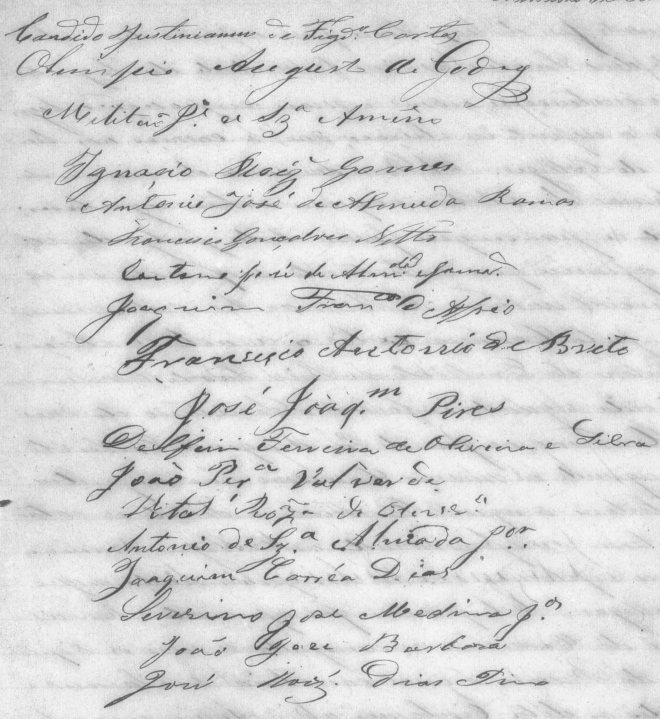 Candido Justinianno de Figdo Cortes
Olimpio August de Godoy
Militão Pi de Sza Amino
Ignacio Gomes
Antonio José de Almeida Ramos
Francisco Gonçalves Netto
Caetano José de Almda Gama
Joaquim Franco d'Assis
Francisco Antonio de Brito
José Joaqm Pires
Delfim Ferreira de Oliveira e Silva
João Pera Valverde
Vital de Olivra
Antonio de Sza Almada Jor
Joaquim Corrêa Dias
Severino José Medina Jor
João Barbosa
José Dias